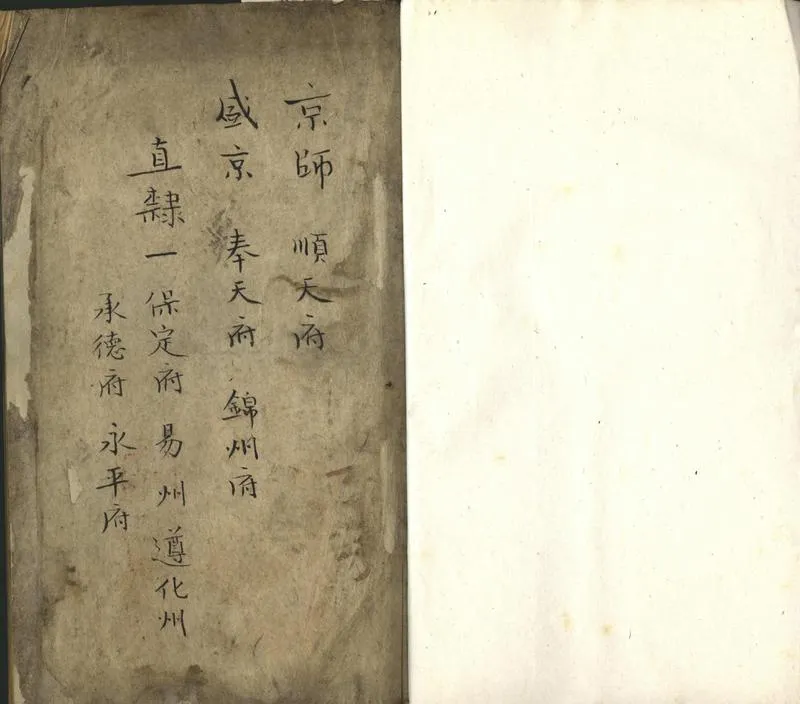 京師 順天府
盛京 奉天府 錦州府
直隸一 保定府 易州 遵化州
承德府 永平府